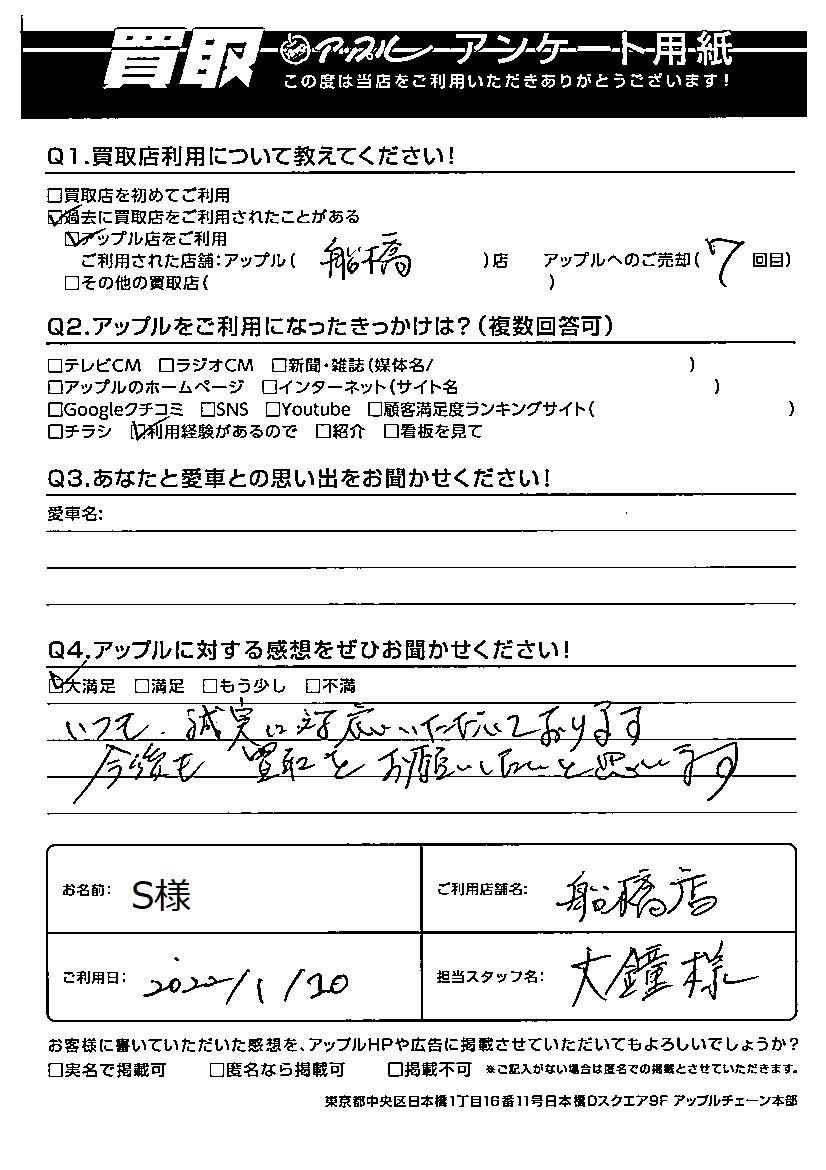 買取 アップル アンケート用紙
この度は当店をご利用いただきありがとうございます!
Q1.買取店利用について教えてください!
□買取店を初めてご利用
☑過去に買取店をご利用されたことがある
☑アップル店をご利用
ご利用された店舗:アップル( 船橋 )店 アップルへのご売却( 7 回目)
□その他の買取店( )
Q2.アップルをご利用になったきっかけは?(複数回答可)
□テレビCM □ラジオCM □新聞・雑誌(媒体名/ )
□アップルのホームページ □インターネット(サイト名 )
□Googleクチコミ □SNS □Youtube □顧客満足度ランキングサイト( )
□チラシ ☑利用経験があるので □紹介 □看板を見て
Q3.あなたと愛車との思い出をお聞かせください!
愛車名:
Q4.アップルに対する感想をぜひお聞かせください!
☑大満足 □満足 □もう少し □不満
いつも、誠実に対応いただいております
今後も買取をお願いしたいと思います
お名前: S様 ご利用店舗名: 船橋店
ご利用日: 2022/1/20 担当スタッフ名: 大鐘様
お客様に書いていただいた感想を、アップルHPや広告に掲載させていただいてもよろしいでしょうか?
□実名で掲載可 □匿名なら掲載可 □掲載不可 ※ご記入がない場合は匿名での掲載とさせていただきます。
東京都中央区日本橋1丁目16番11号日本橋Dスクエア9F アップルチェーン本部